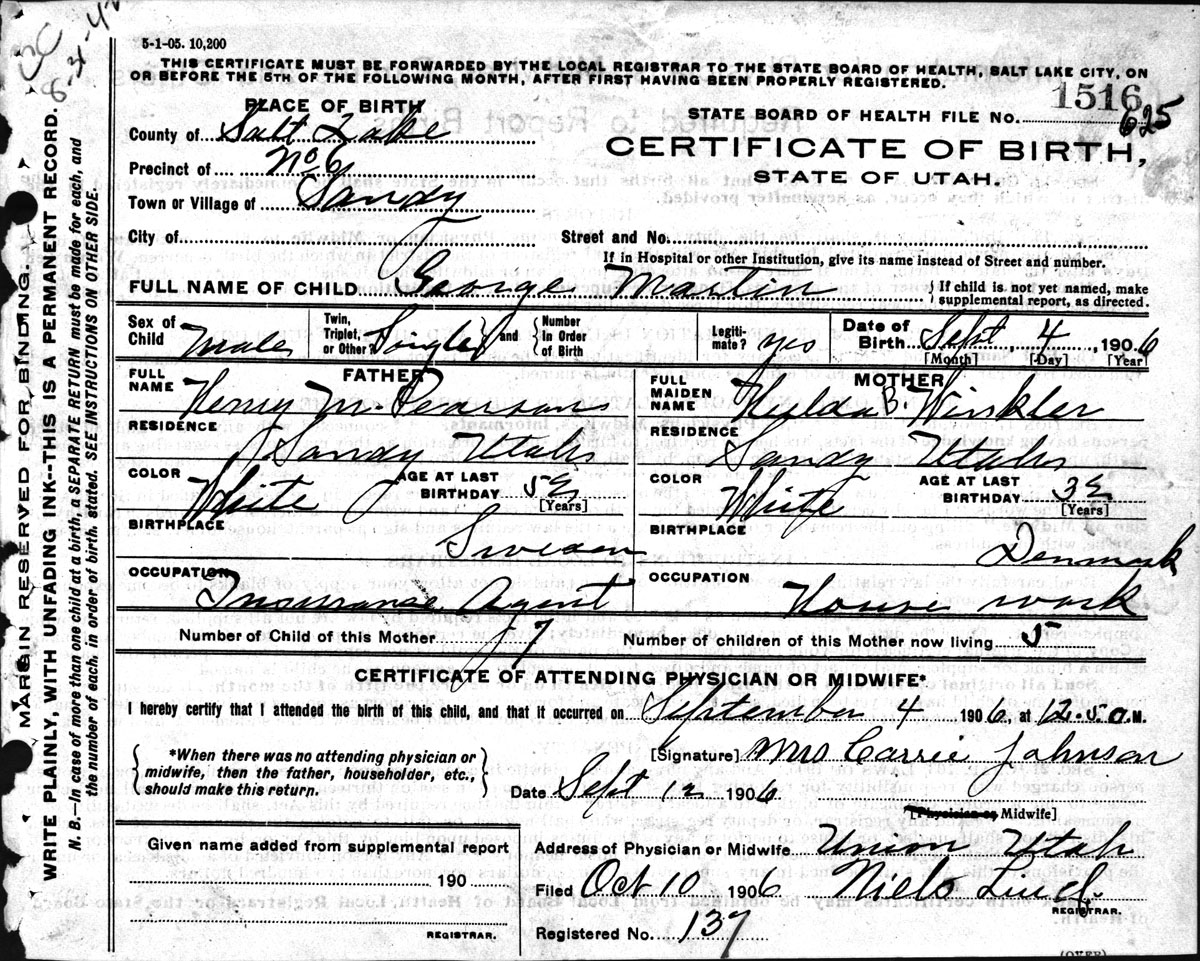 8-31-42
5-1-05. 10,200
THIS CERTIFICATE MUST BE FORWARDED BY THE LOCAL REGISTRAR TO THE STATE BOARD OF HEALTH, SALT LAKE CITY, ON
OR BEFORE THE 5TH OF THE FOLLOWING MONTH, AFTER FIRST HAVING BEEN PROPERLY REGISTERED.
MARGIN RESERVED FOR BINDING.
WRITE PLAINLY, WITH UNFADING INK--THIS IS A PERMANENT RECORD.
N. B.--In case of more than one child at a birth, a SEPARATE RETURN must be made for each, and
the number of each, in order of birth, stated. SEE INSTRUCTIONS ON OTHER SIDE.
PLACE OF BIRTH
County of Salt Lake
Precinct of No 6
Town or Village of Sandy
City of
1516
STATE BOARD OF HEALTH FILE No. 625
CERTIFICATE OF BIRTH,
STATE OF UTAH.
Street and No.
If in Hospital or other Institution, give its name instead of Street and number.
FULL NAME OF CHILD George Martin
If child is not yet named, make
supplemental report, as directed.
Sex of Child Male
Twin, Triplet, or Other? Single and Number in Order of Birth
Legitimate? yes
Date of Birth Sept 4 1906
[Month] [Day] [Year]
FATHER
FULL NAME Henry M. Pearsons
RESIDENCE Sandy Utah
COLOR White
AGE AT LAST BIRTHDAY 52
[Years]
BIRTHPLACE Sweden
OCCUPATION Insurance Agent
MOTHER
FULL MAIDEN NAME Hulda B. Winkler
RESIDENCE Sandy Utah
COLOR White
AGE AT LAST BIRTHDAY 32
[Years]
BIRTHPLACE Denmark
OCCUPATION House work
Number of Child of this Mother 7
Number of children of this Mother now living 5
CERTIFICATE OF ATTENDING PHYSICIAN OR MIDWIFE*
I hereby certify that I attended the birth of this child, and that it occurred on September 4 1906, at 12.5 a.M.
*When there was no attending physician or
midwife, then the father, householder, etc.,
should make this return.
[Signature] Mrs Carrie Johnson
Date Sept 12 1906
[Physician or Midwife]
Given name added from supplemental report
190
REGISTRAR.
Address of Physician or Midwife Union Utah
Filed Oct 10 1906 Niels Lind.
REGISTRAR.
Registered No. 137
(OVER)